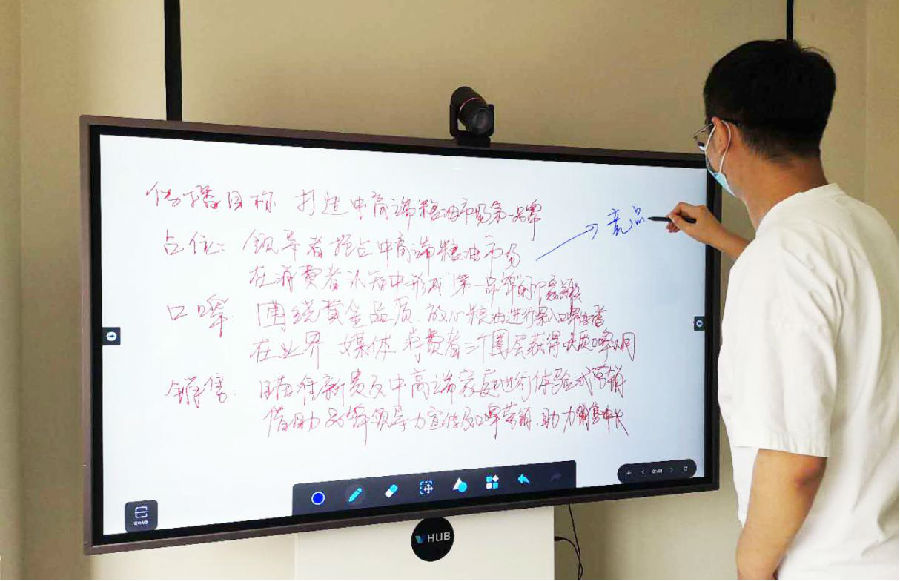 传播目标 打造中高端粮油市场第一品牌
占位: 领导者抢占中高端粮油市场
→ 竞品
在消费者心智中形成第一品牌的
口碑 围绕黄金品质 放心粮油进行深入口碑
在业界 媒体 消费者三个圈层获得
销售: 中高端家庭进行体验式营销
借助品牌领导力宣传及口碑营销, 助力销售增长
VHUB